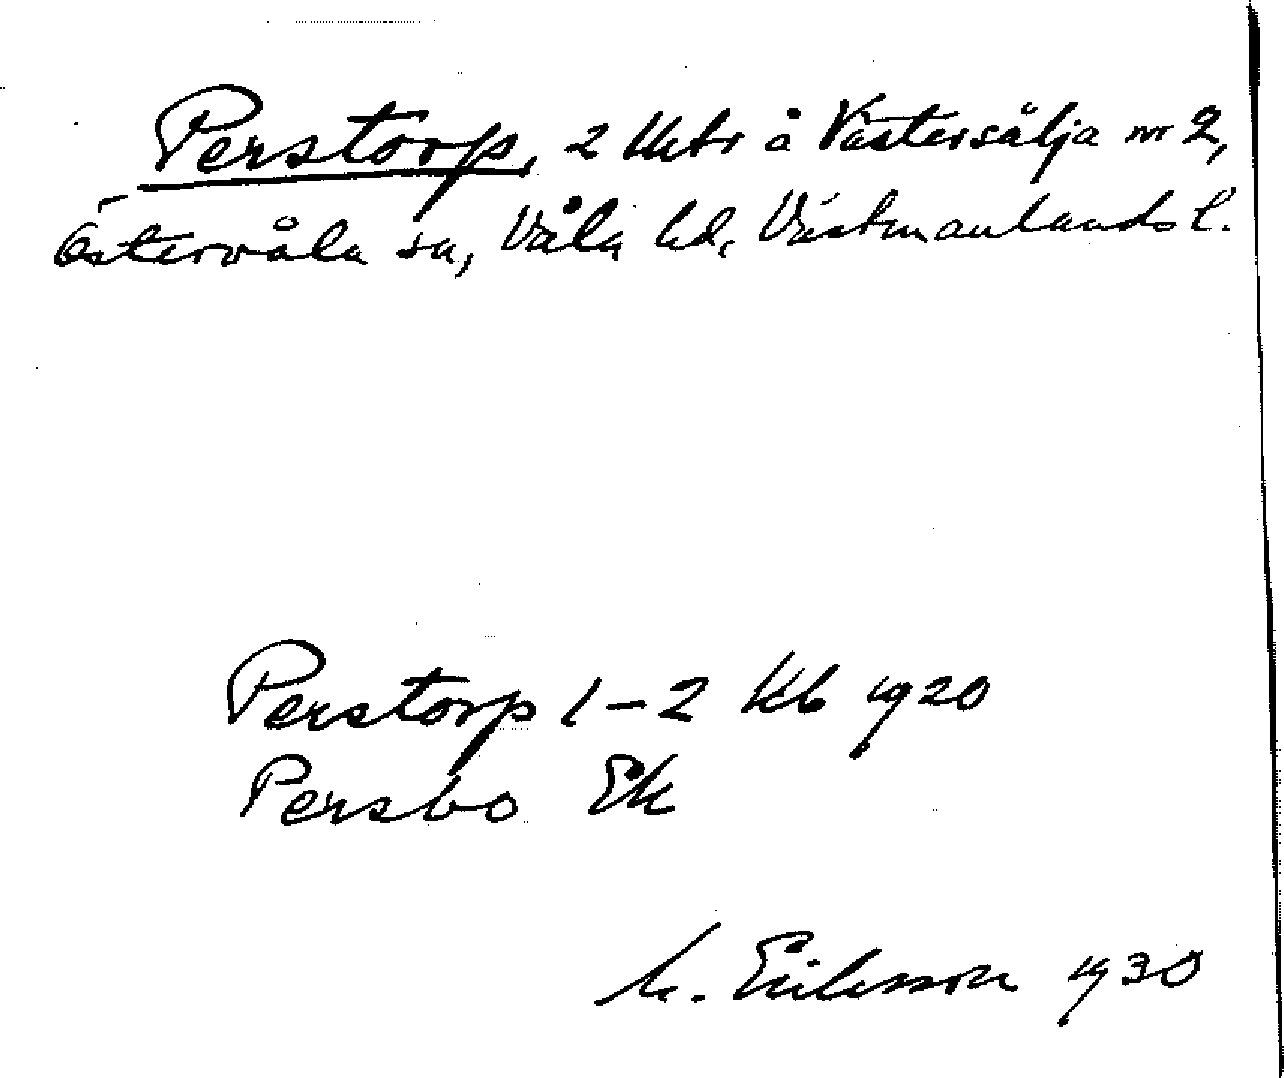 Perstorp, 2 lhtr å Västersälja nr 2,
Östervåla sn, Våla hd, Västmanlands l.
Perstorp 1-2 Kb 1920
Persbo Ek
M. Eriksson 1930